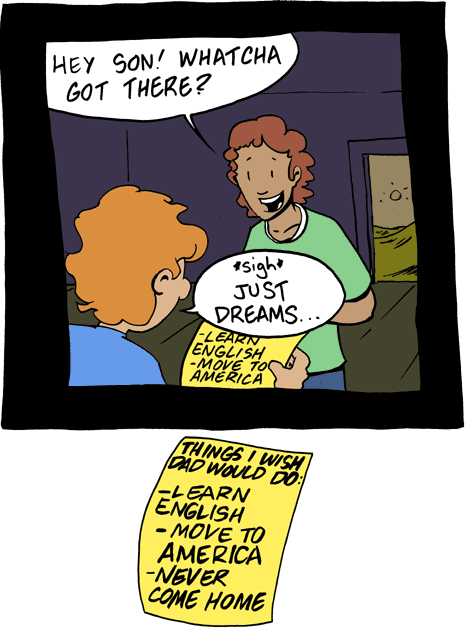 HEY SON! WHATCHA
GOT THERE?
*sigh*
JUST
DREAMS...
-LEARN
ENGLISH
-MOVE TO
AMERICA
THINGS I WISH
DAD WOULD DO:
-LEARN
ENGLISH
-MOVE TO
AMERICA
-NEVER
COME HOME